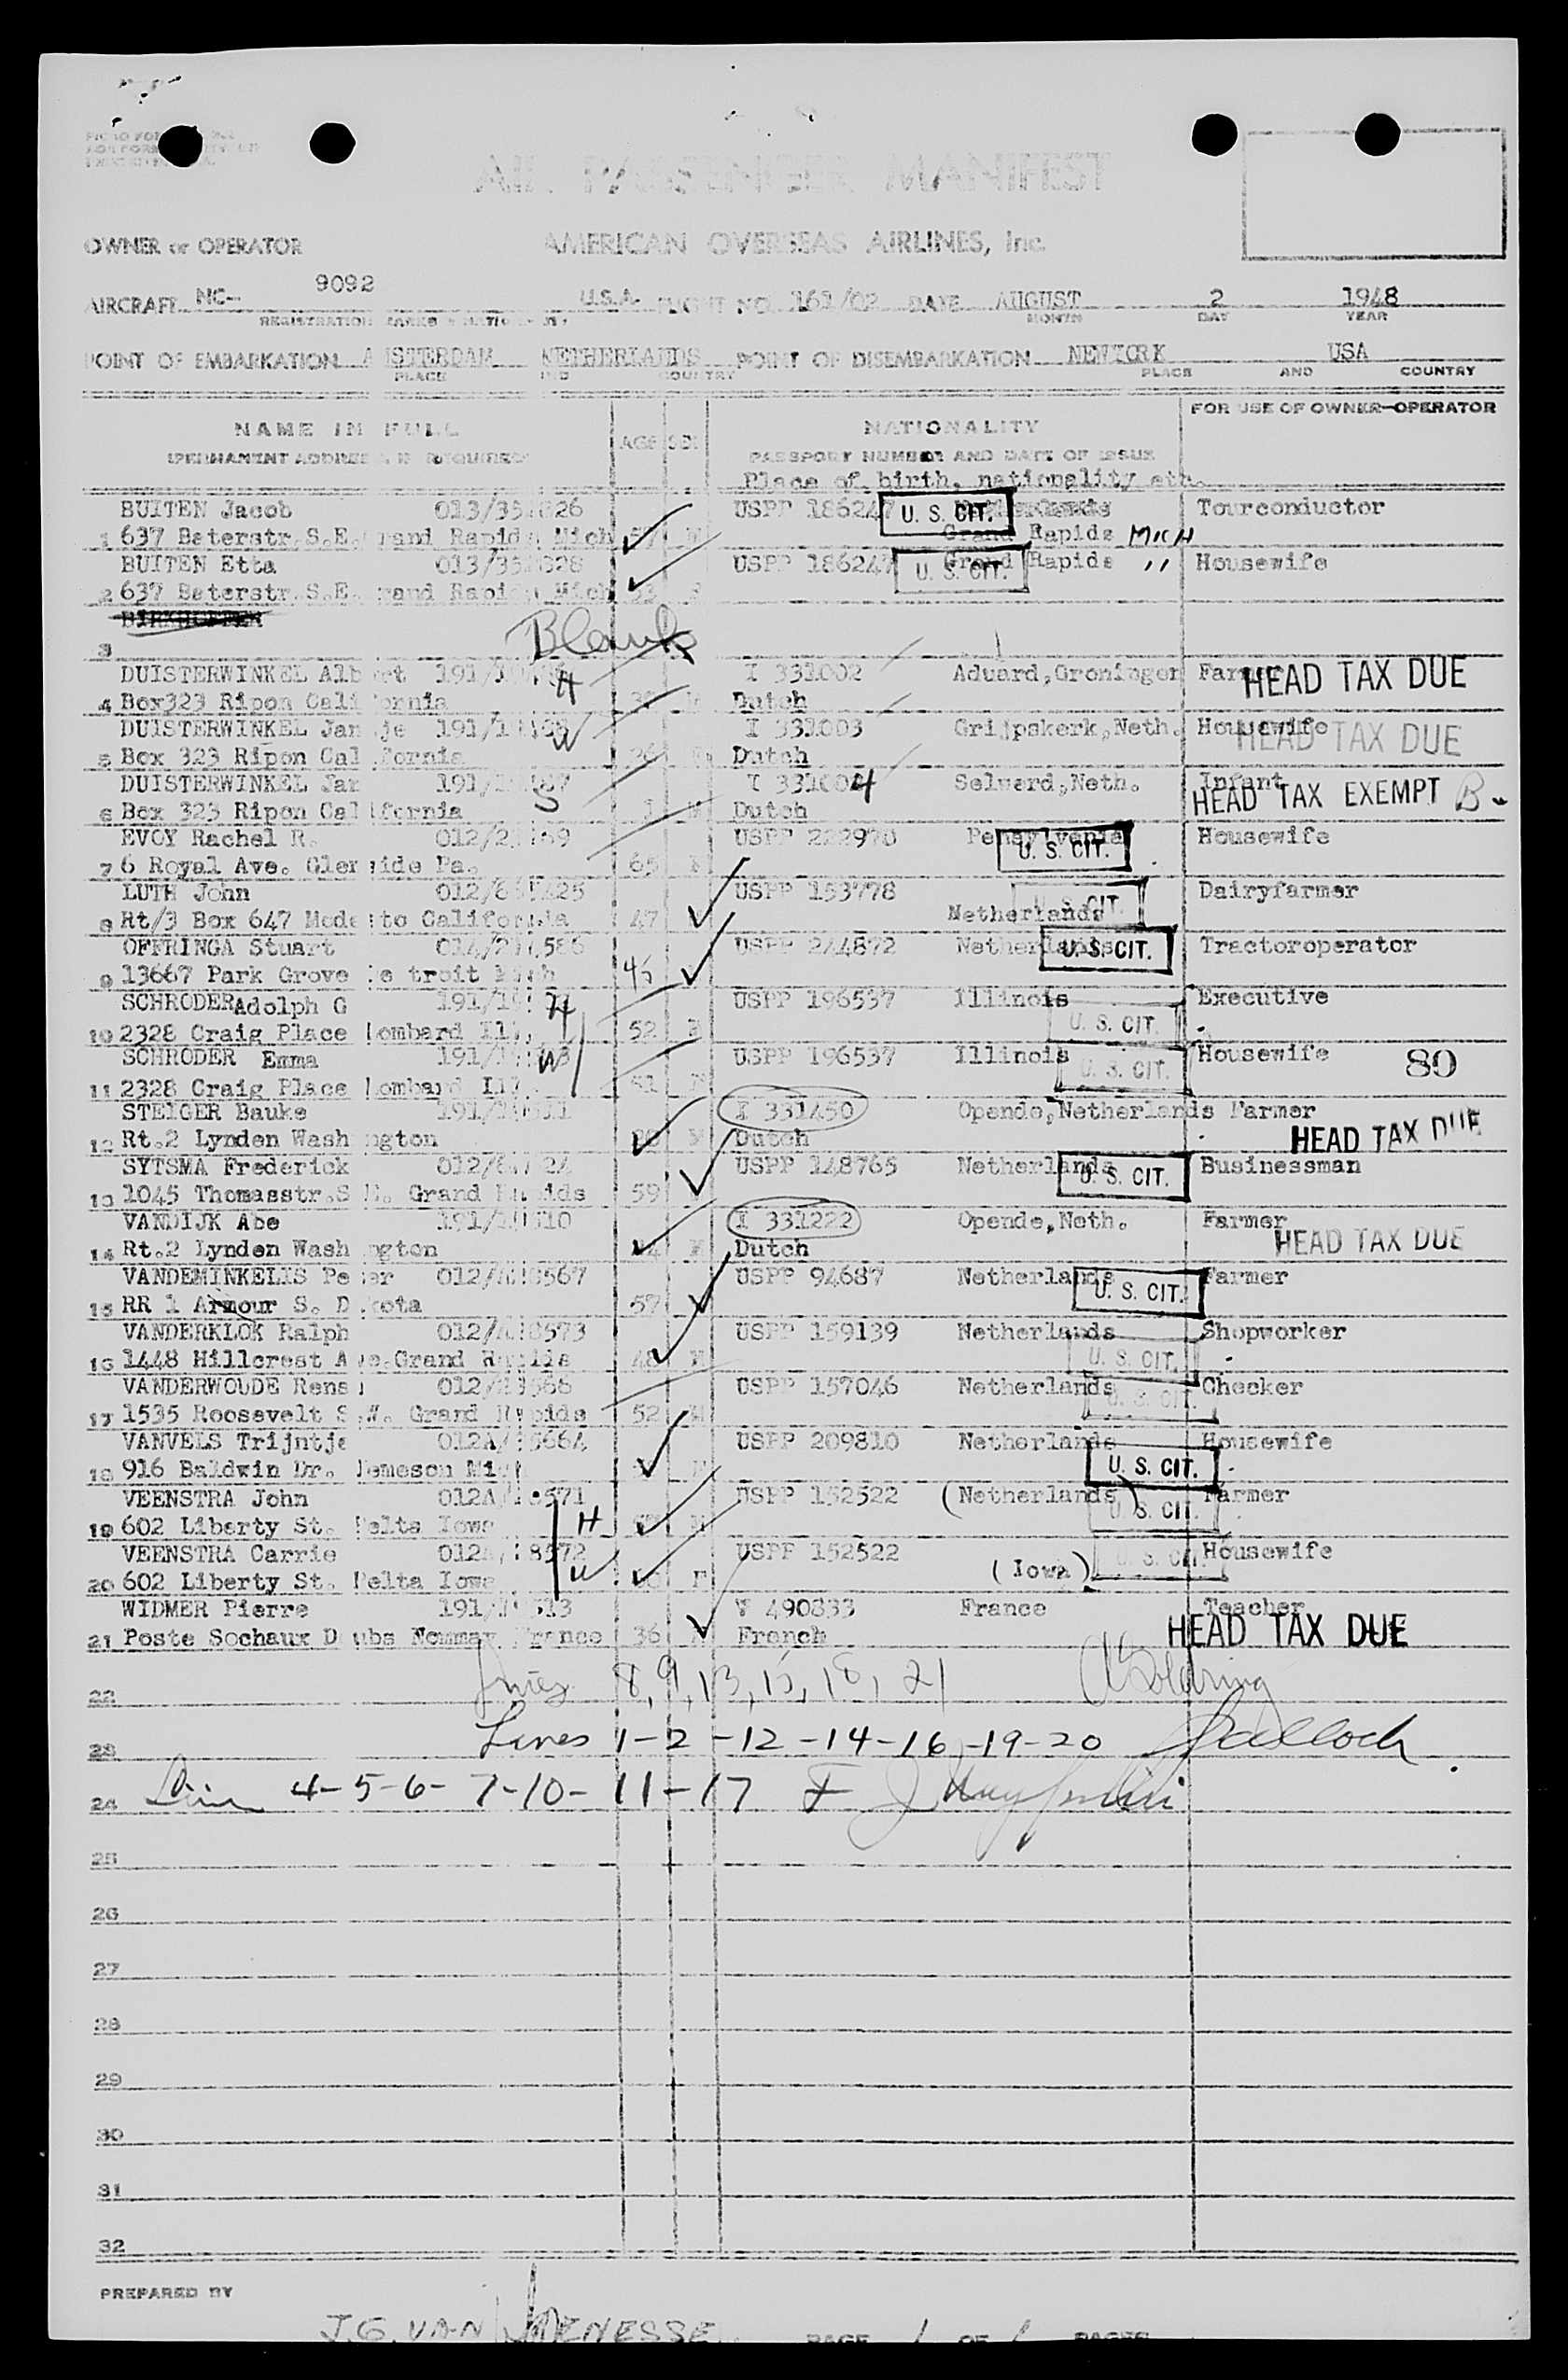 AIR PASSENGER MANIFEST
OWNER or OPERATOR AMERICAN OVERSEAS AIRLINES, Inc.
AIRCRAFT NC- 9092 U.S.A. FLIGHT NO. 161/02 DATE AUGUST 2 1948
REGISTRATION MARKS MONTH DAY YEAR
POINT OF EMBARKATION AMSTERDAM NETHERLANDS POINT OF DISEMBARKATION NEWYORK USA
PLACE AND COUNTRY PLACE AND COUNTRY
FOR USE OF OWNER-OPERATOR
NAME IN FULL AGE SEX NATIONALITY
(PERMANENT ADDRESS IF REQUIRED) PASSPORT NUMBER AND DATE OF ISSUE
Place of birth, nationality etc.
BUITEN Jacob USPP 186247 U. S. CIT. Tourconductor
1 637 Baterstr.S.E. Grand Rapids Mich 57 M Grand Rapids MICH
BUITEN Etta USPP 186247 U. S. CIT. Grand Rapids " Housewife
2 637 Baterstr.S.E. Grand Rapids Mich 53 F
BIRKHOFFEN
3 Blank
DUISTERWINKEL Albert H I 331002 Aduard,Groningen Farmer HEAD TAX DUE
4 Box323 Ripon California M Dutch
DUISTERWINKEL Jantje W I 331003 Grijpskerk,Neth. Housewife HEAD TAX DUE
5 Box 323 Ripon California F Dutch
DUISTERWINKEL Jan S I 331004 Selwerd,Neth. Infant
6 Box 323 Ripon California 1 M Dutch HEAD TAX EXEMPT B-
EVOY Rachel R. USPP 222970 Pensylvania U. S. CIT. Housewife
7 6 Royal Ave. Glenside Pa. 65 F
LUTH John USPP 153778 U. S. CIT. Dairyfarmer
8 Rt/3 Box 647 Modesto California 47 Netherlands
OFFRINGA Stuart USPP 244872 Netherlands U. S. CIT. Tractoroperator
9 13667 Park Grove De troit Mich 45
SCHRODER Adolph G H USPP 196537 Illinois Executive
10 2328 Craig Place Lombard Ill. 52 M U. S. CIT.
SCHRODER Emma W USPP 196537 Illinois Housewife 80
11 2328 Craig Place Lombard Ill. 51 F U. S. CIT.
STEIGER Bauke I 331450 Opende,Netherlands Farmer
12 Rt.2 Lynden Washington M Dutch HEAD TAX DUE
SYTSMA Frederick USPP 148765 Netherlands U. S. CIT. Businessman
13 1045 Thomasstr.S.E. Grand Rapids 59
VANDIJK Abe I 331222 Opende,Neth. Farmer
14 Rt.2 Lynden Washington M Dutch HEAD TAX DUE
VANDEMINKELIS Peter USPP 94687 Netherlands U. S. CIT. Farmer
15 RR 1 Armour S. Dakota 57
VANDERKLOK Ralph USPP 159139 Netherlands Shopworker
16 1448 Hillcrest Ave.Grand Rapids 48 M U. S. CIT.
VANDERWOUDE Rens USPP 157046 Netherlands U. S. CIT. Checker
17 1535 Roosevelt S.W. Grand Rapids 52 M
VANVELS Trijntje USPP 209810 Netherlands Housewife
18 916 Baldwin Dr. Jemeson Mich F U. S. CIT.
VEENSTRA John H USPP 152522 (Netherlands) U. S. CIT. Farmer
19 602 Liberty St. Pella Iowa M
VEENSTRA Carrie W USPP 152522 (Iowa) U. S. CIT. Housewife
20 602 Liberty St. Pella Iowa F
WIDMER Pierre V 490833 France Teacher
21 Poste Sochaux Doubs France 36 M French HEAD TAX DUE
22 Lines 8, 9, 13, 15, 18, 21 Goldring
23 Lines 1-2-12-14-16-19-20
24 Lin 4-5-6-7-10-11-17
25
26
27
28
29
30
31
32
PREPARED BY
J.G. VAN PAGE 1 OF 1 PAGES